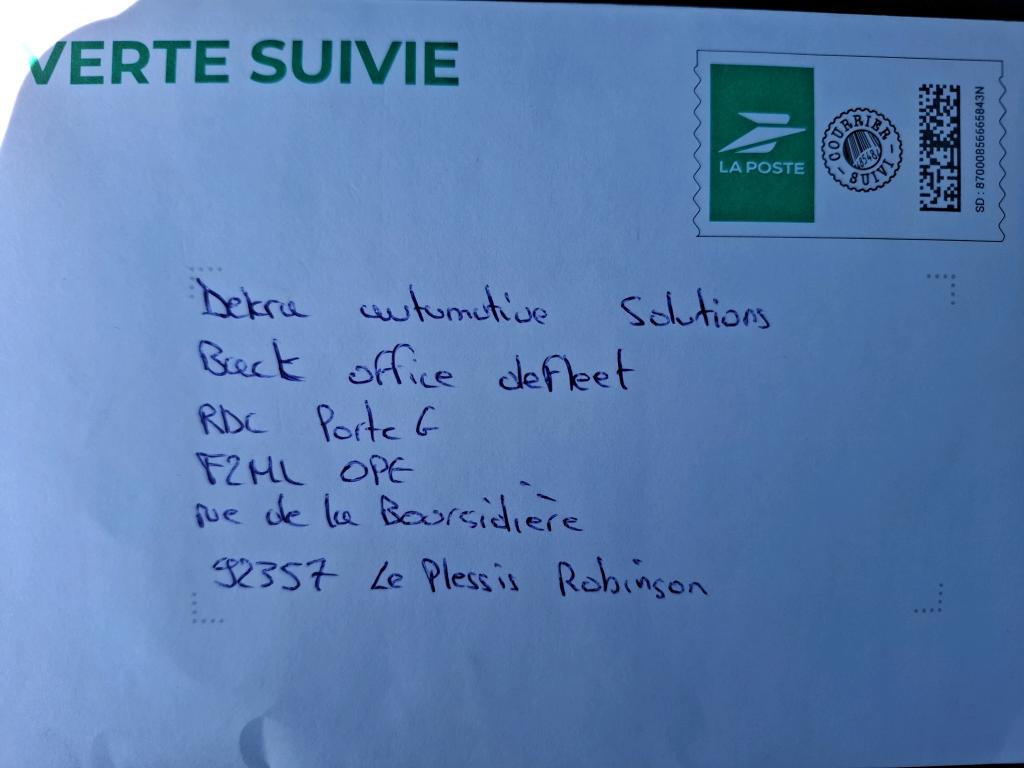 VERTE SUIVIE
LA POSTE
COURRIER SUIVI
SD : 87000856665843N
Dekra automotive Solutions
Back office defleet
RDC Porte G
F2ML OPE
rue de la Boursidière
92357 Le Plessis Robinson